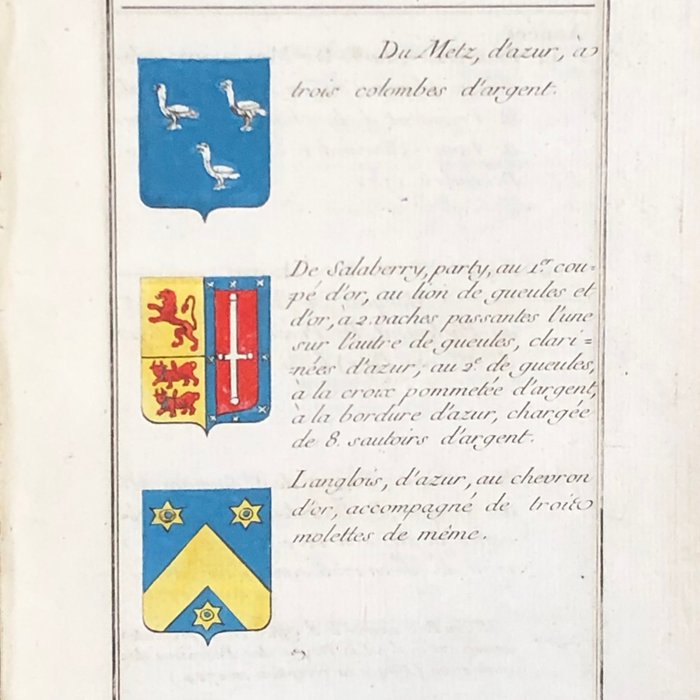 Du Metz, d'azur, à
trois colombes d'argent.
De Salaberry, party, au 1.er cou=
pé d'or, au lion de gueules et
d'or, à 2. vaches passantes l'une
sur l'autre de gueules, clari=
=nées d'azur; au 2.e de gueules,
à la croix pommetée d'argent,
à la bordure d'azur, chargée
de 8. sautoirs d'argent.
Langlois, d'azur, au chevron
d'or, accompagné de trois
molettes de même.